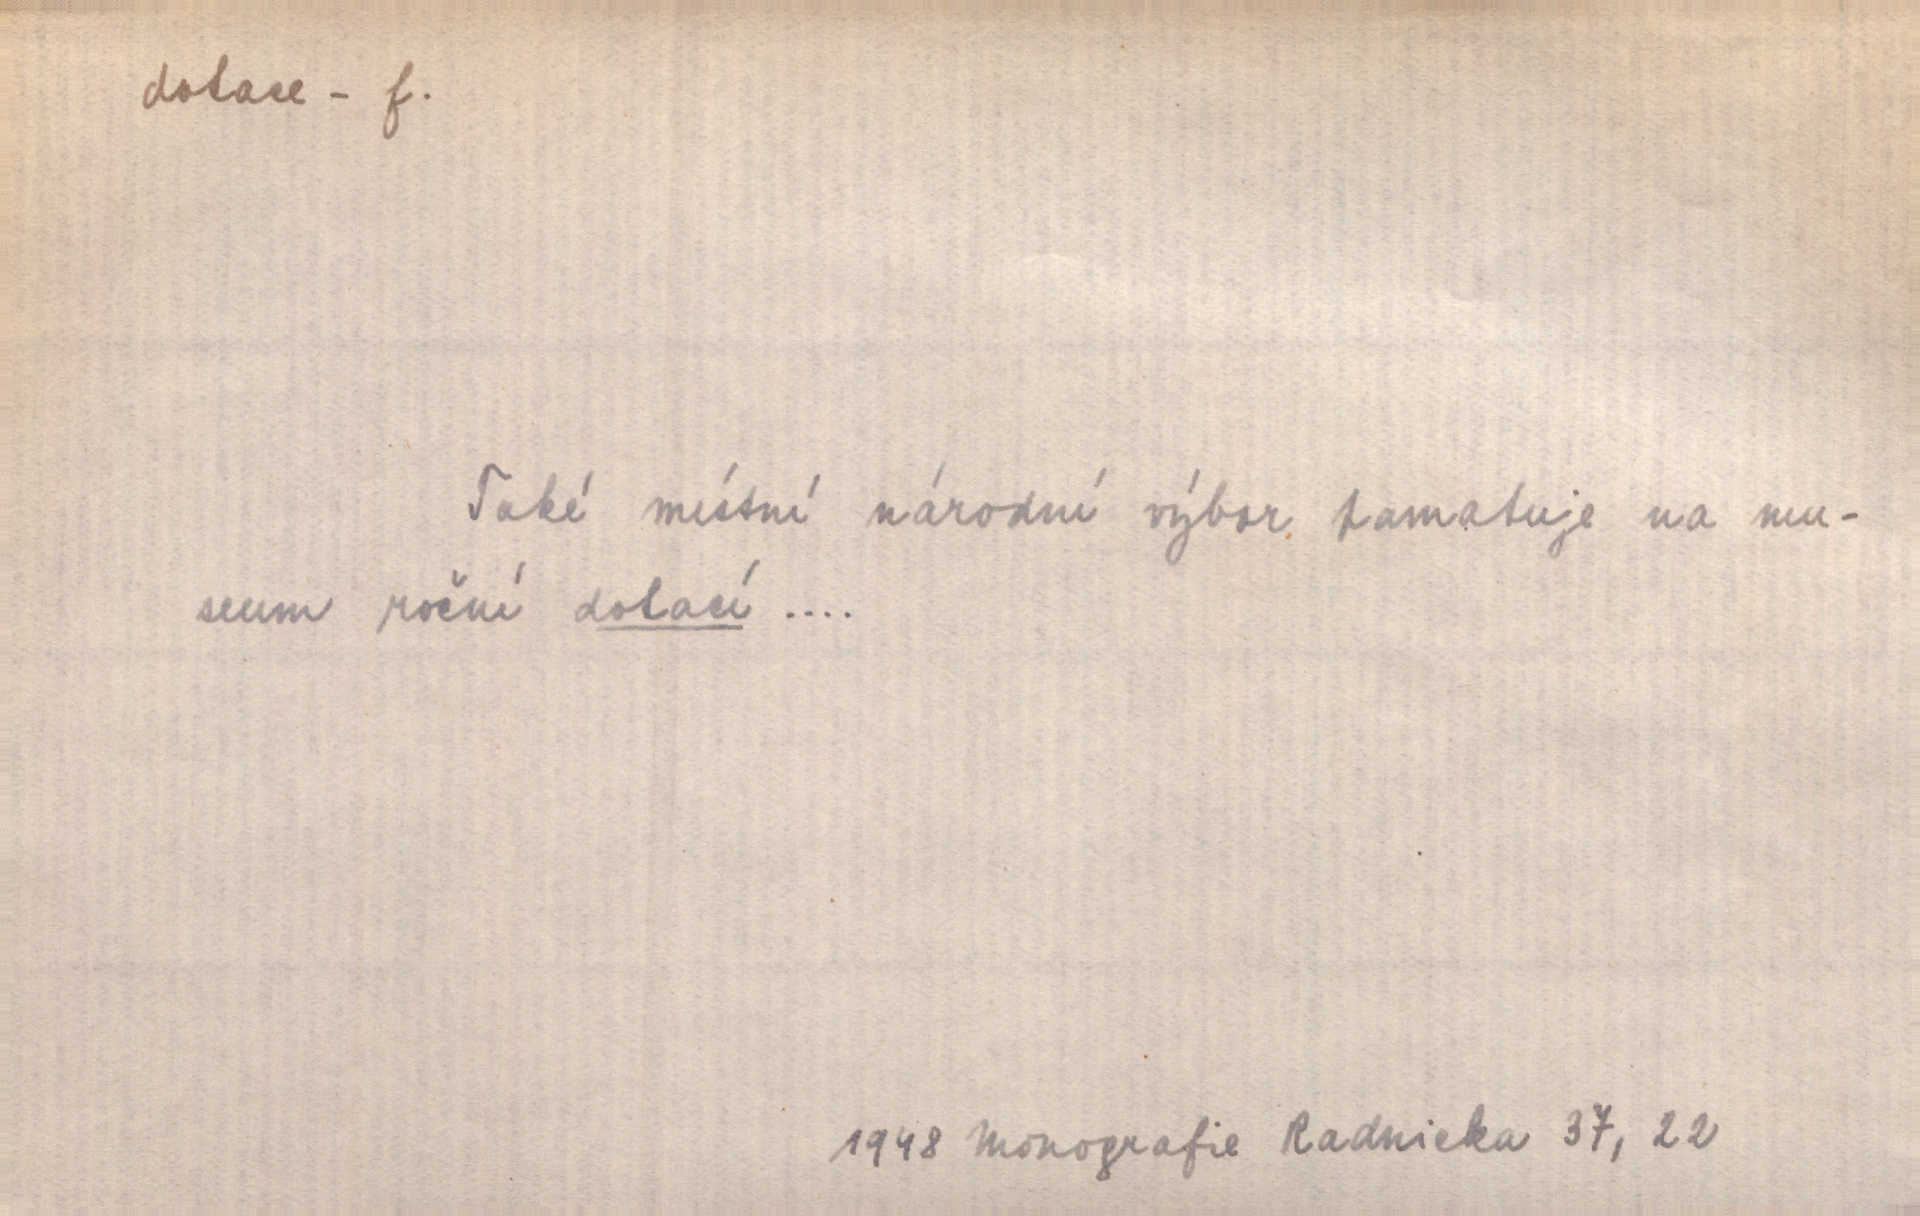 dotace - f.
Také místní národní výbor pamatuje na mu-
seum roční dotací ....
1948 Monografie Radnicka 37, 22